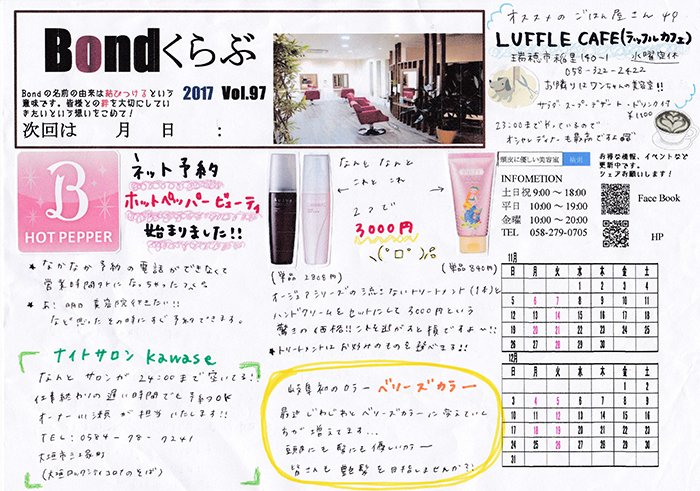 Bondくらぶ
Bondの名前の由来は結びつけるという
意味です。皆様との絆を大切にしてい
きたいという想いをこめて!
2017 Vol.97
次回は 月 日 :
オススメのごはん屋さん
LUFFLE CAFE(ラッフルカフェ)
瑞穂市稲里140-1 水曜定休
058-322-2422
お隣りはワンちゃんの美容室!!
サラダ・スープ・デザート・ドリンク付
¥1,100
23:00までやっているので
オシャレディナーも最高です
B
HOT PEPPER
ネット予約
ホットペッパービューティ
始まりました!!
★なかなか予約の電話ができなくて
営業時間外になっちゃった
★お!明日美容院行きたい!!
など思ったその時にすぐ予約できます。
なんと なんと
← これと これ →
2つで
3000円
(単品 2808円)
(単品 840円)
オージュアシリーズの流さないトリートメント(1本)と
ハンドクリームをセットにして3000円という
驚きの価格!!これを逃がすと損ですよ〜!!
★トリートメントはお好みのものを選べます!!
頭皮に優しい美容室 検索
お得な情報、イベントなど
更新中です。
シェアお願いします!
INFOMETION
土日祝 9:00 ～ 18:00
平日 10:00 ～ 19:00
金曜 10:00 ～ 20:00
TEL 058-279-0705
Face Book
HP
11月
日 月 火 水 木 金 土
1 2 3 4
5 6 7 8 9 10 11
12 13 14 15 16 17 18
19 20 21 22 23 24 25
26 27 28 29 30
12月
日 月 火 水 木 金 土
1 2
3 4 5 6 7 8 9
10 11 12 13 14 15 16
17 18 19 20 21 22 23
24 25 26 27 28 29 30
31
ナイトサロン kawase
なんとサロンが24:00まで空いてる!!
仕事終わりの遅い時間でも予約OK
オーナー川瀬が担当いたします!!
TEL:0584-78-7241
大垣市三塚町
(大垣ロックシティコロナのそば)
岐阜初のカラー ベリーズカラー
最近じわじわとベリーズカラーに変えていく
方が増えてます...
頭皮にも髪にも優しいカラー
皆さんも艶髪を目指しませんか?!